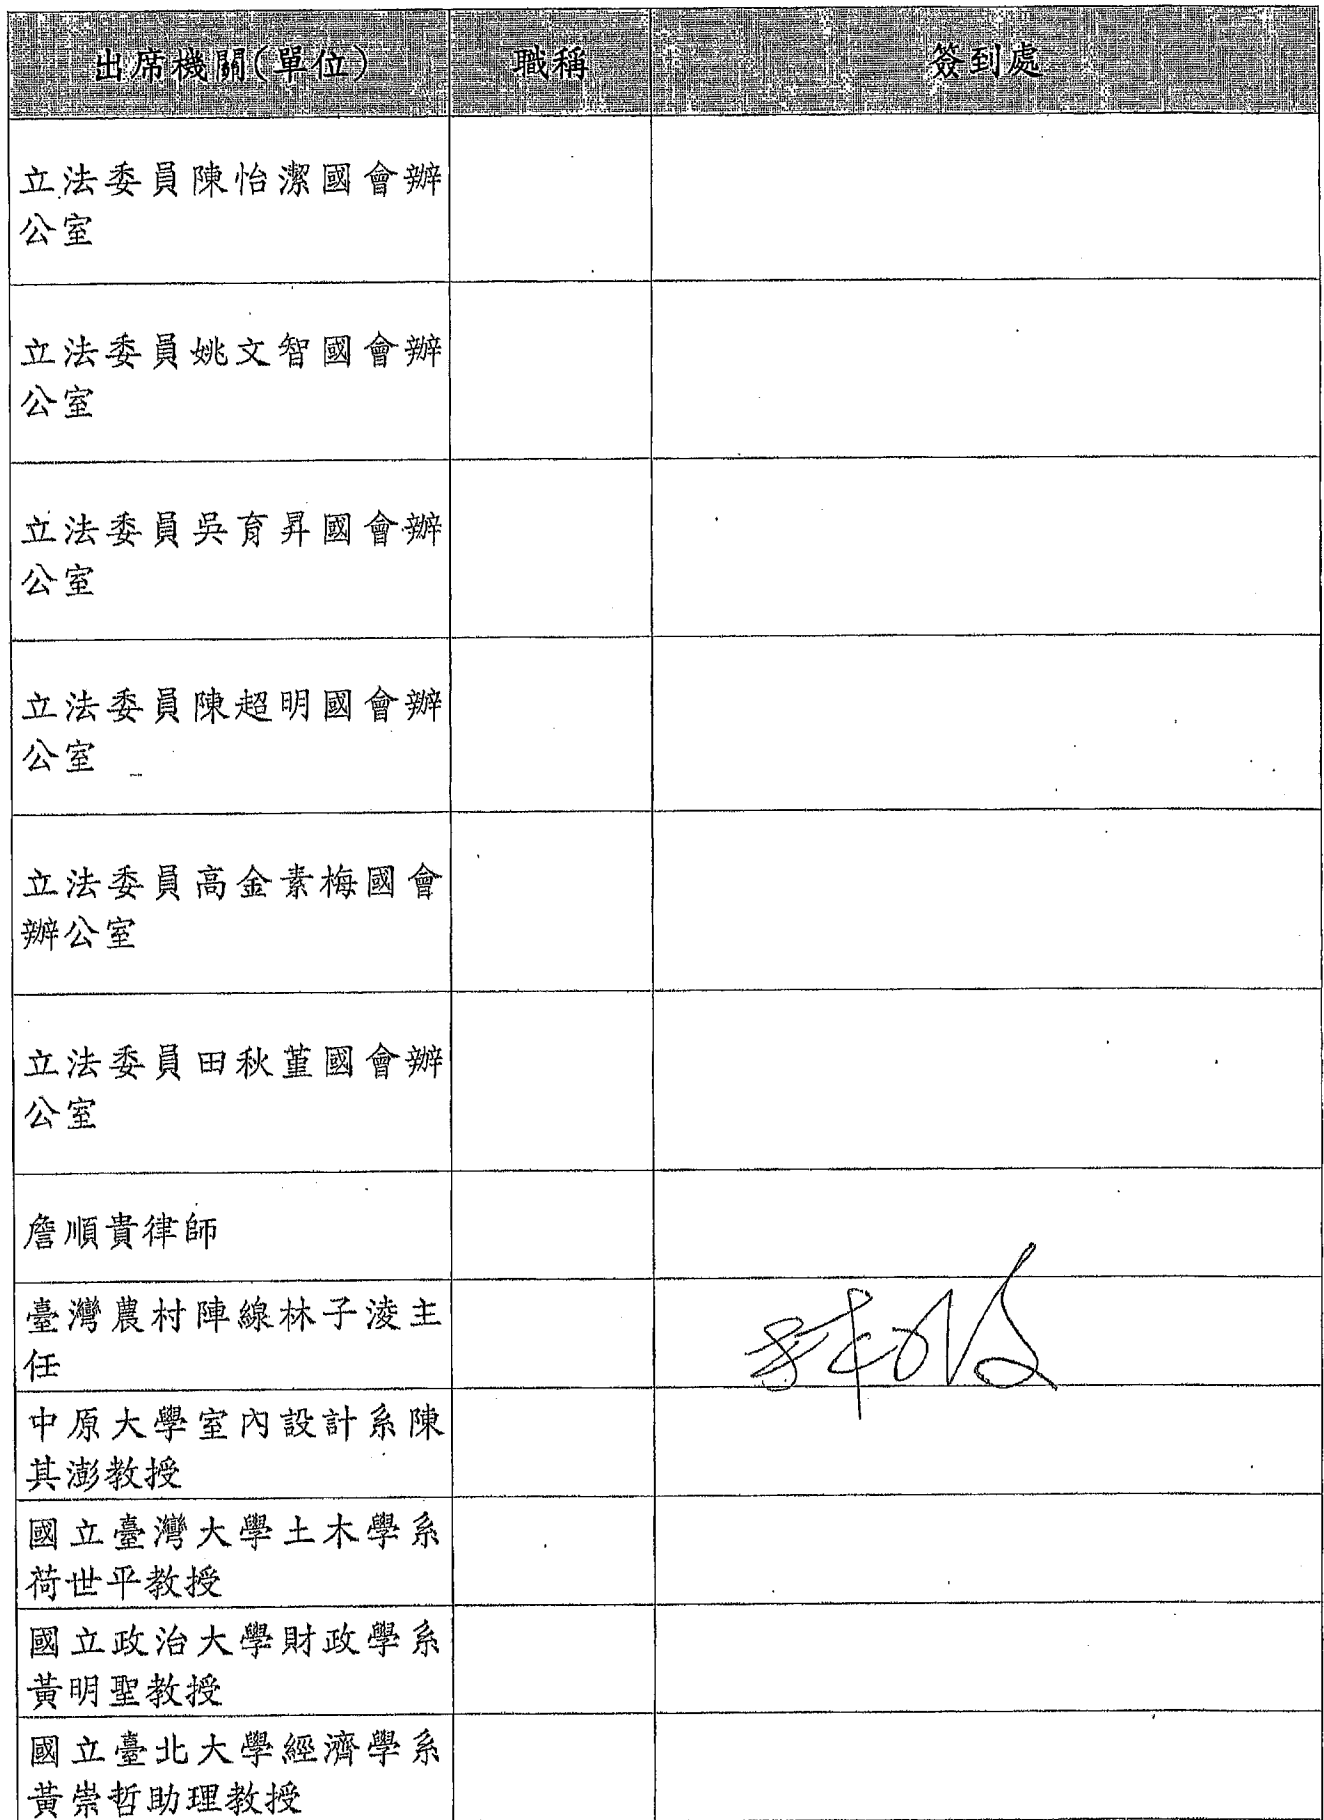 出席機關(單位) 職稱 簽到處
立法委員陳怡潔國會辦
公室
立法委員姚文智國會辦
公室
立法委員吳育昇國會辦
公室
立法委員陳超明國會辦
公室
立法委員高金素梅國會
辦公室
立法委員田秋堇國會辦
公室
詹順貴律師
臺灣農村陣線林子淩主
任
中原大學室內設計系陳
其澎教授
國立臺灣大學土木學系
荷世平教授
國立政治大學財政學系
黃明聖教授
國立臺北大學經濟學系
黃崇哲助理教授